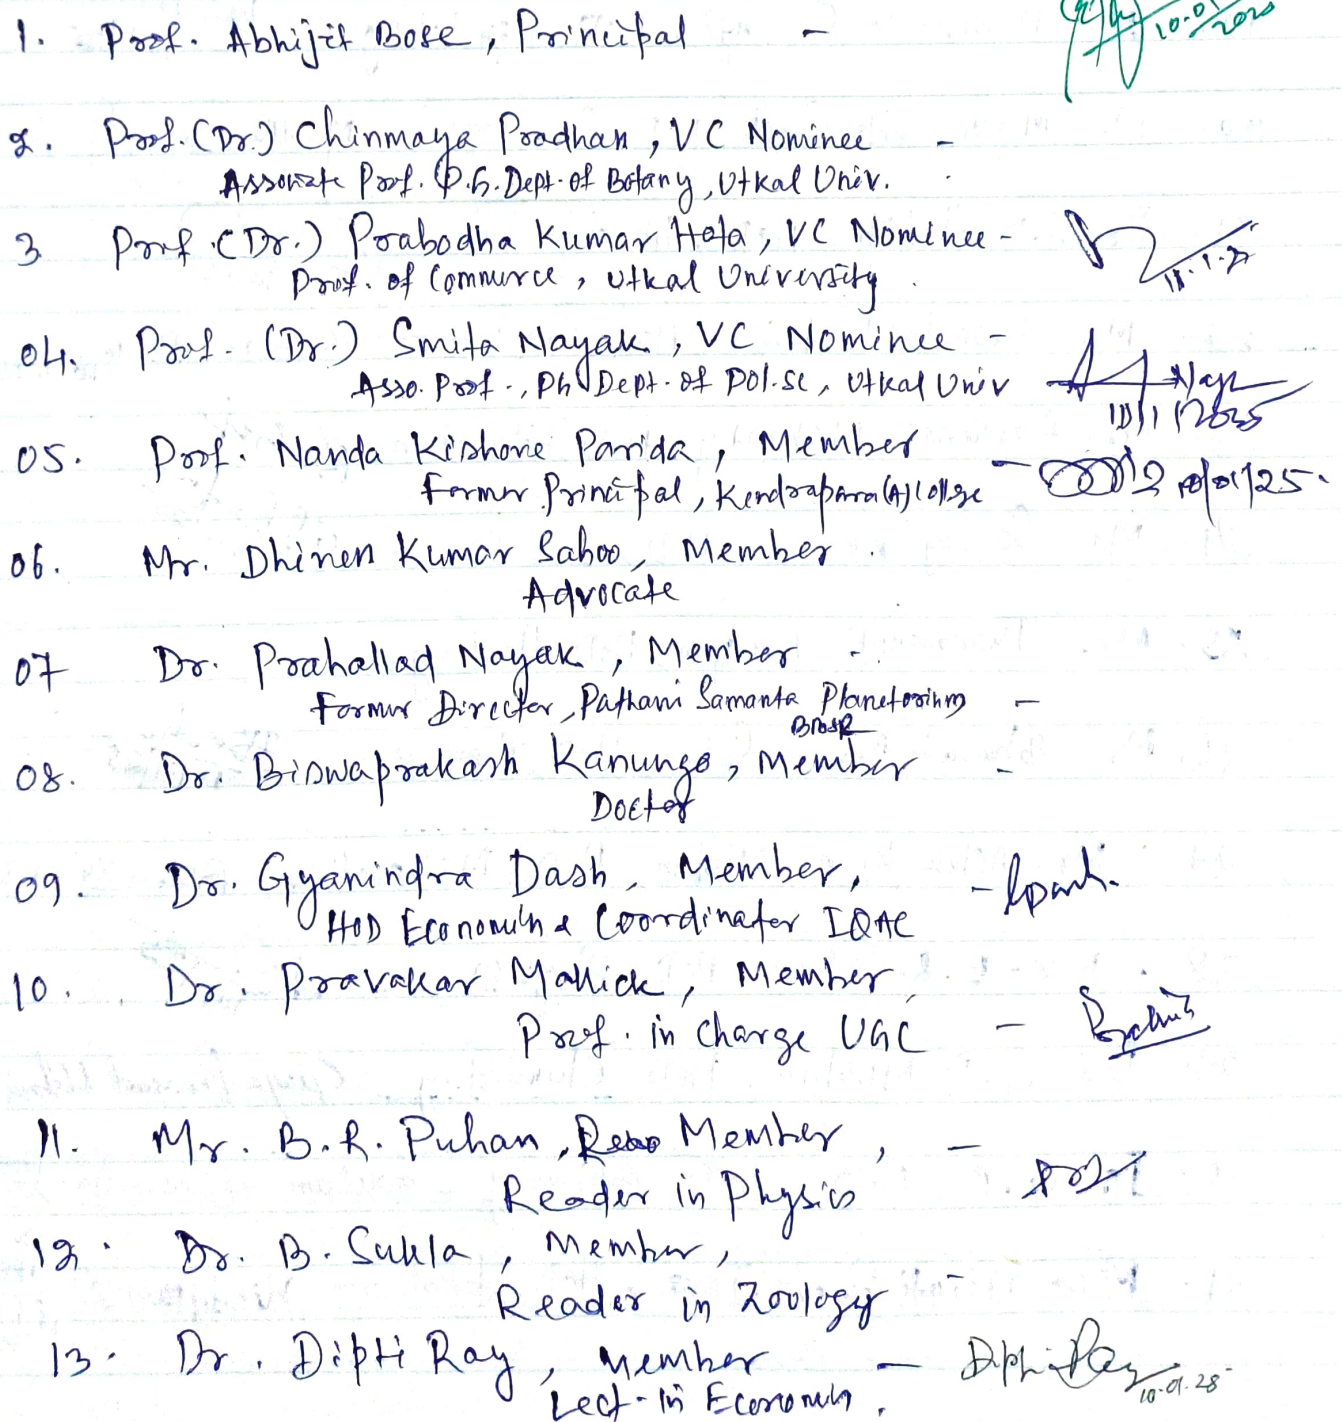 1. Prof. Abhijit Bose, Principal - 10.01 2020
2. Prof. (Dr.) Chinmaya Pradhan, VC Nominee -
Associate Prof. P.G. Dept. of Botany, Utkal Univ.
3 Prof. (Dr.) Prabodha Kumar Hota, VC Nominee -
Prof. of Commerce, Utkal University.
04. Prof. (Dr.) Smita Nayak, VC Nominee -
Asso. Prof., PG Dept. of Pol.Sc, Utkal Univ
05. Prof. Nanda Kishore Parida, Member
Former Principal, Kendrapara (A) College - 10/01/25.
06. Mr. Dhiren Kumar Sahoo, Member.
Advocate
07 Dr. Prahallad Nayak, Member -
Former Director, Pathani Samanta Planetorium -
BBSR
08. Dr. Biswaprakash Kanungo, Member -
Doctor
09. Dr. Gyanindra Dash, Member, -
HOD Economics & Coordinator IQAC
10. Dr. Pravakar Mallick, Member,
Prof. in charge UGC -
11. Mr. B.R. Puhan, Member, -
Reader in Physics
12. Dr. B. Sukla, Member,
Reader in Zoology -
13. Dr. Dipti Ray, Member - Dipti Ray
Lect. in Economics.